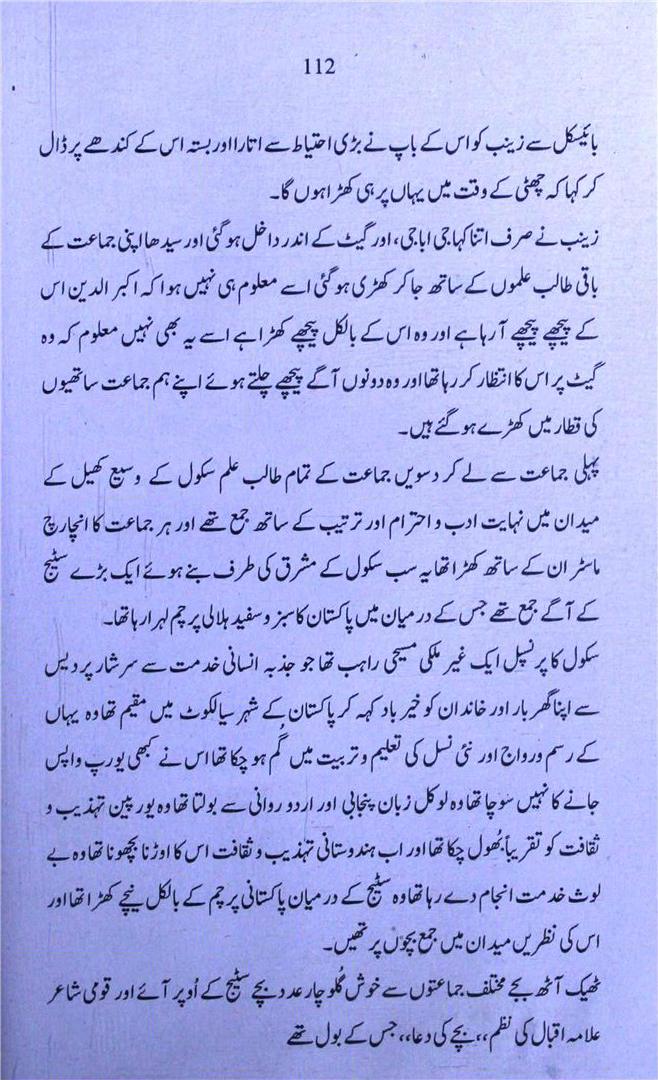 112
بائیسکل سے زینب کو اس کے باپ نے بڑی احتیاط سے اتارا اور بستہ اس کے کندھے پر ڈال
کر کہا کہ چھٹی کے وقت میں یہاں پر ہی کھڑا ہوں گا۔
زینب نے صرف اتنا کہا جی اباجی، اور گیٹ کے اندر داخل ہو گئی اور سیدھا اپنی جماعت کے
باقی طالب علموں کے ساتھ جا کر کھڑی ہو گئی اسے معلوم ہی نہیں ہوا کہ اکبر الدین اس
کے پیچھے پیچھے آ رہا ہے اور وہ اس کے بالکل پیچھے کھڑا ہے اسے یہ بھی نہیں معلوم کہ وہ
گیٹ پر اس کا انتظار کر رہا تھا اور وہ دونوں آگے پیچھے چلتے ہوئے اپنے ہم جماعت ساتھیوں
کی قطار میں کھڑے ہو گئے ہیں۔
پہلی جماعت سے لے کر دسویں جماعت کے تمام طالب علم سکول کے وسیع کھیل کے
میدان میں نہایت ادب و احترام اور ترتیب کے ساتھ جمع تھے اور ہر جماعت کا انچارج
ماسٹر ان کے ساتھ کھڑا تھا یہ سب سکول کے مشرق کی طرف بنے ہوئے ایک بڑے سٹیج
کے آگے جمع تھے جس کے درمیان میں پاکستان کا سبز و سفید ہلالی پرچم لہرا رہا تھا۔
سکول کا پرنسپل ایک غیر ملکی مسیحی راہب تھا جو جذبہ انسانی خدمت سے سرشار پردیس
سے اپنا گھر بار اور خاندان کو خیر باد کہہ کر پاکستان کے شہر سیالکوٹ میں مقیم تھا وہ یہاں
کے رسم ورواج اور نئی نسل کی تعلیم و تربیت میں گم ہو چکا تھا اس نے کبھی یورپ واپس
جانے کا نہیں سوچا تھا وہ لوکل زبان پنجابی اور اردو روانی سے بولتا تھا وہ یورپین تہذیب و
ثقافت کو تقریباً بھُول چکا تھا اور اب ہندوستانی تہذیب و ثقافت اس کا اوڑنا بچھونا تھا وہ بے
لوث خدمت انجام دے رہا تھا وہ سٹیج کے درمیان پاکستانی پرچم کے بالکل نیچے کھڑا تھا اور
اس کی نظریں میدان میں جمع بچوں پر تھیں۔
ٹھیک آٹھ بجے مختلف جماعتوں سے خوش گلُو چار عدد بچے سٹیج کے اُوپر آئے اور قومی شاعر
علامہ اقبال کی نظم ،،بچے کی دعا،، جس کے بول تھے